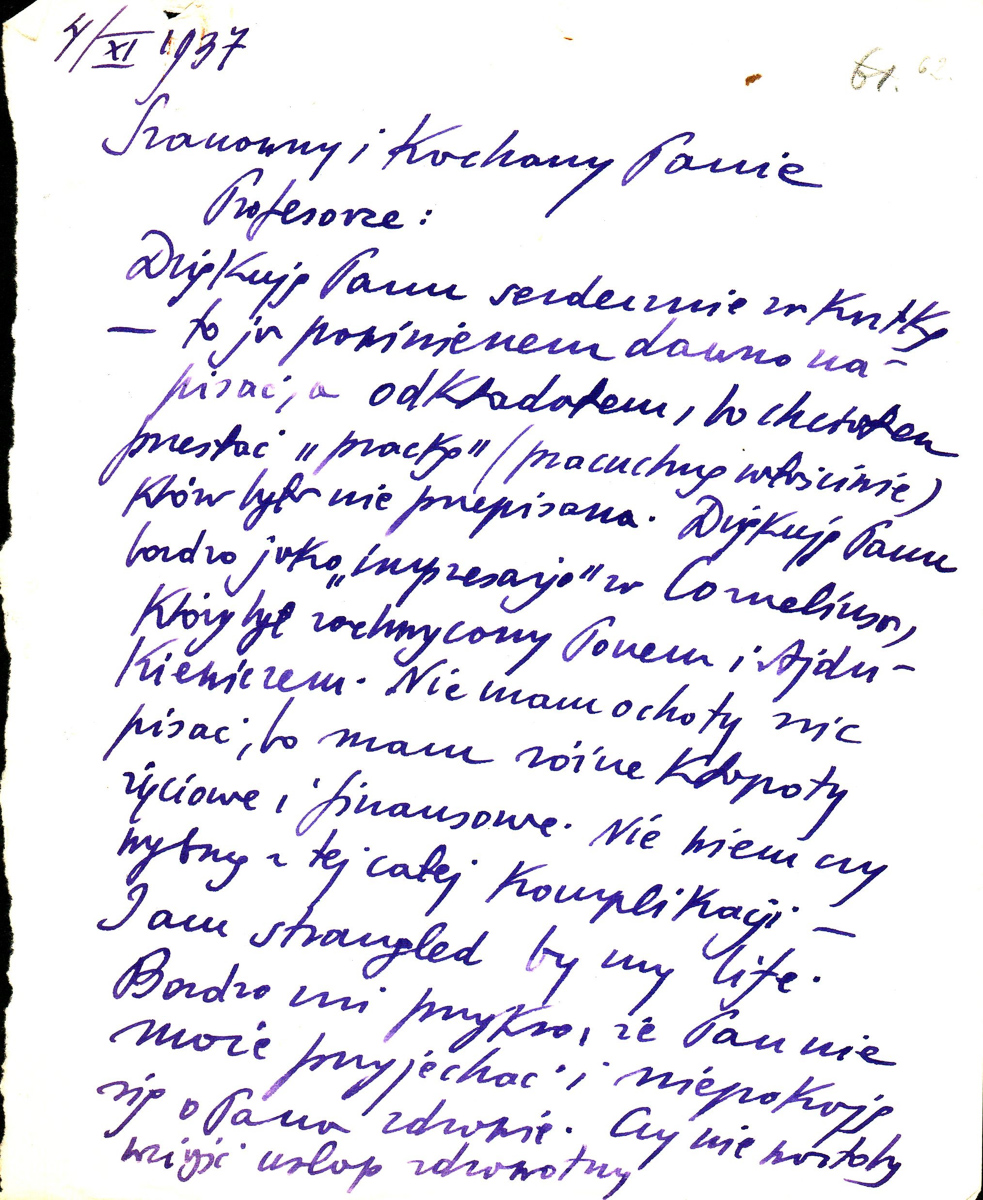 4/XI 1937
61. 62.
Szanowny i Kochany Panie
Profesorze:
Dziękuję Panu serdecznie za kartkę
— to ja powinienem dawno na-
pisać, a odkładałem, bo chciałem
przesłać „prackę" (pracuchnę właściwie)
która była nie przepisana. Dziękuję Panu
bardzo jako „impresario" za Corneliusa,
który był zachwycony Panem i Ajdu-
kiewiczem. Nie mam ochoty nic
pisać, bo mam różne kłopoty
życiowe i finansowe. Nie wiem czy
wybrnę z tej całej komplikacji —
I am strangled by my life.
Bardzo mi przykro, że Pan nie
może przyjechać i niepokoję
się o Pana zdrowie. Czy nie wartoby
wziąść urlop zdrowotny